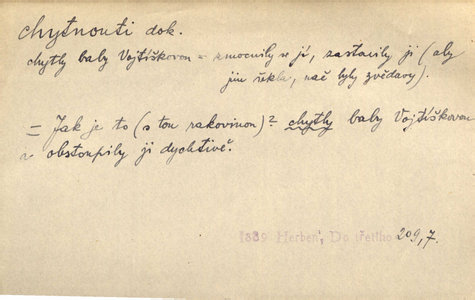 chytnouti dok.
chytly baby Vojtíškovou = zmocnily se jí, zastavily ji (aby
jim řekla, nač byly zvědavy).
= Jak je to (s tou rakovinou)? chytly baby Vojtíškovou
a obstoupily ji dychtivě.
1889 Herben, Do třetího 209,7.